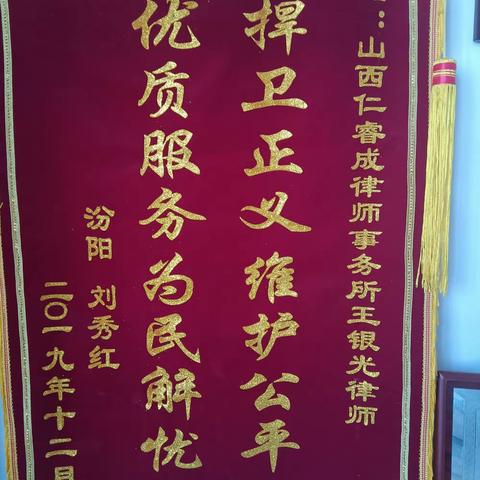 ：山西仁睿成律师事务所王银光律师
捍卫正义维护公平
优质服务为民解忧
汾阳 刘秀红
二〇一九年十二月